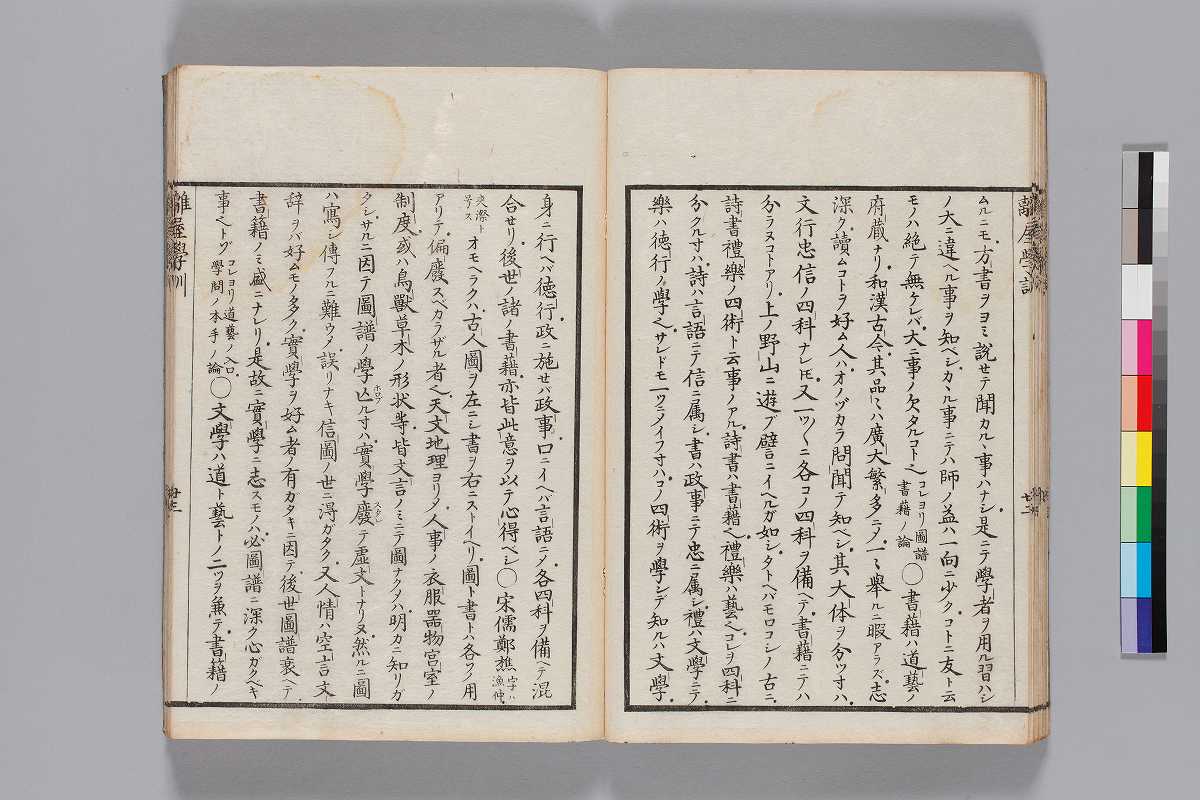 離屋學訓
ムルニモ方書ヲヨミ説セテ聞カル丶事ハナシ是ニテ學者ヲ用ル習ハシ
ノ大ニ違ヘル事ヲ知ベシカ丶ル事ニテハ師ノ益ハ一向ニ少クコトニ友ト云
モノハ絶テ無ケレバ大ニ事ノ欠タルコト也コレヨリ圖譜書籍ノ論〇書籍ハ道藝ノ
府蔵ナリ和漢古今其品〻ハ廣大繁多ニメ一〻舉ルニ暇アラズ志
深ク讀ムコトヲ好ム人ハオノヅカラ問聞テ知ベシ其大体ヲ分ツ寸ハ
文行忠信ノ四科ナレ𪜈又一ツ〳〵ニ各コノ四科ヲ備ヘテ書籍ニテハ
分ラヌコトアリ上ノ野山ニ遊ブ譬言ニイヘルガ如シタトヘバモロコシノ古ニ
詩書禮樂ノ四術ト云事ノアル詩書ハ書籍也禮樂ハ藝也コレヲ四科ニ
分クル寸ハ詩ハ言語ニテ信ニ属シ書ハ政事ニテ忠ニ属シ禮ハ文學ニテ
樂ハ徳行ノ學也サレドモ一ツニノイフ寸ハコノ四術ヲ學シデ知ルハ文學
身ニ行ヘバ徳行政ニ施セバ政事口ニイヘハ言語ニメ各四科ヲ備ヘテ混
合セリ後世ノ諸ノ書籍亦皆此意ヲ以テ心得ベシ〇宋儒鄭樵字ハ漁仲
夾漈ト号スオモヘラクハ古人圖ヲ左ニシ書ヲ右ニストイヘリ圖ト書トハ各ツノ用
アリテ偏廢スベカラザル者也天文地理ヨリノ人事ノ衣服器物宮室ノ
制度或ハ鳥獸草木ノ形状等皆文言ノミニテ圖ナクメハ明カニ知リガ
クシサルニ因テ圖譜ノ學亡ホロブル寸ハ實學廢スタレテ虚文トナリヌ然ルニ圖
ハ寫シ傳フルニ難ウメ誤リナキ信圖ノ世ニ淂ガタク又人情ハ空言文
辞ヲバ好ムモノ多ク實學ヲ好ム者ノ有カタキニ因テ後世圖譜衰ヘテ
書籍ノミ盛ニナレリ是故ニ實學ニ志スモノハ必圖譜ニ深ク心ガクベキ
事也トゾコレヨリ道藝ノ入口學問ノ本手ノ論〇文學ハ道ト藝トノ二ツヲ兼テ書籍ノ
離屋學訓